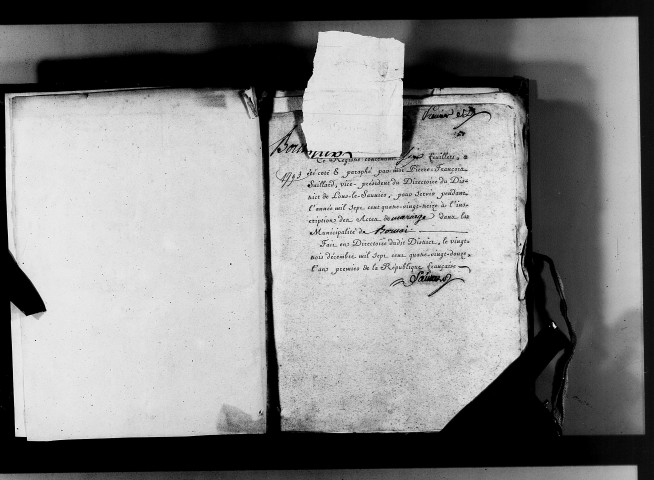 1793
Ce Registre contenant six feuillets, a
été coté & paraphé par moi Pierre-François
Saillard, vice-président du Directoire du Dis-
trict de Lons-le-Saunier, pour servir pendant
l'année mil sept cent quatre-vingt-treize à l'ins-
cription des Actes de mariage dans la
Municipalité de
Fait en Directoire dudit District, le vingt
trois décembre mil sept cent quatre-vingt-douze,
l'an premier de la République française